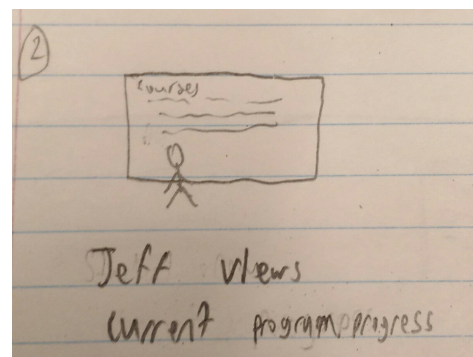 2
Courses
Jeff views
current program progress